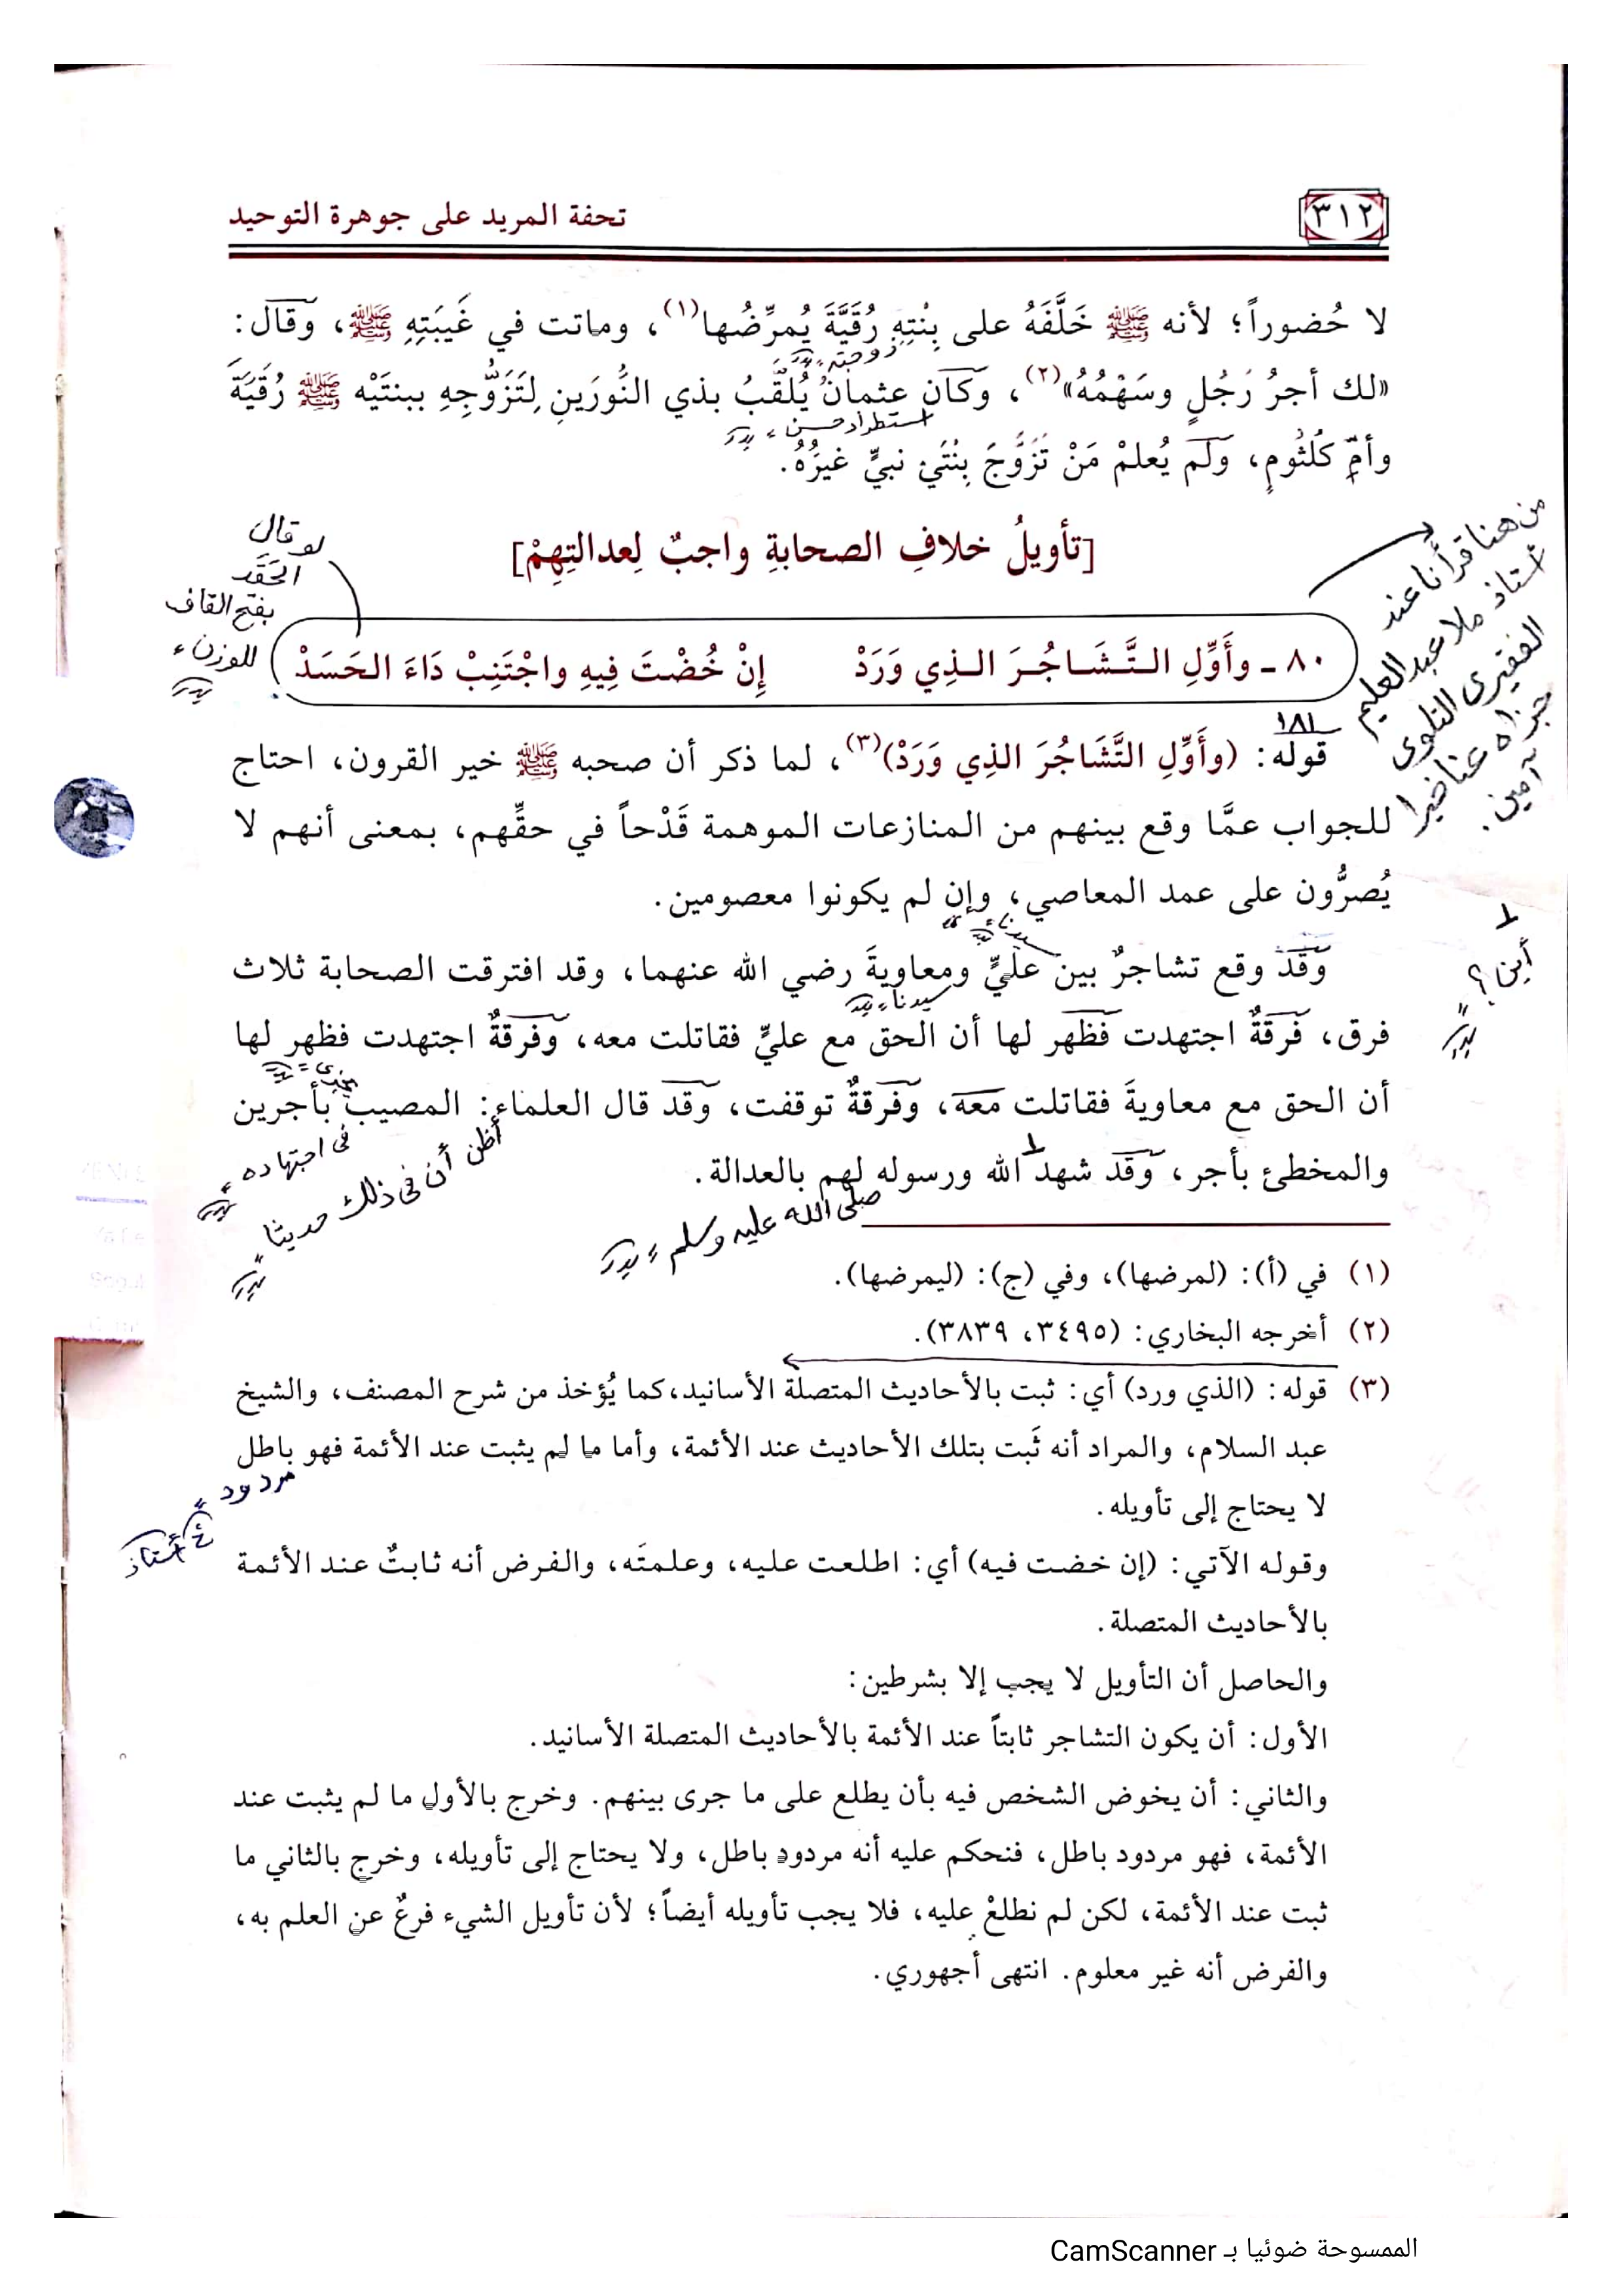 ٣١٢
تحفة المريد على جوهرة التوحيد
لا حُضوراً؛ لأنه ﷺ خَلَّفَهُ على بِنْتِهِ رُقَيَّةَ يُمرِّضُها(١)، وماتت في غَيبَتِهِ ﷺ، وقال:
زوجته
«لك أجرُ رَجُلٍ وسَهْمُهُ»(٢)، وكان عثمانُ يُلقَّبُ بذي النُّورَينِ لِتَزَوُّجِهِ ببنتَيْه ﷺ رُقَيَّةَ
استطراد حسن
وأمِّ كُلثُومٍ، ولم يُعلمْ مَنْ تَزَوَّجَ بِنْتَيْ نبيٍّ غيرُهُ.
[تأويلُ خلافِ الصحابةِ واجبٌ لِعدالتِهِمْ]
من هنا قرأنا عند
أستاذ ملا عبد العليم
جزاه عنا خيرا
آمين.
لو قال
الحَقَد
بفتح القاف
للوزن
٨٠ ـ وأَوِّلِ التَّشَاجُرَ الذِي وَرَدْ إِنْ خُضْتَ فِيهِ واجْتَنِبْ دَاءَ الحَسَدْ
١٨١
قوله: (وأَوِّلِ التَّشَاجُرَ الذِي وَرَدْ)(٣)، لما ذكر أن صحبه ﷺ خير القرون، احتاج
للجواب عمَّا وقع بينهم من المنازعات الموهمة قَدْحاً في حقِّهم، بمعنى أنهم لا
يُصرُّون على عمد المعاصي، وإن لم يكونوا معصومين.
سيدنا
أين؟
وقد وقع تشاجرٌ بين عليٍّ ومعاويةَ رضي الله عنهما، وقد افترقت الصحابة ثلاث
سيدنا
فرق، فرقةٌ اجتهدت فظهر لها أن الحق مع عليٍّ فقاتلت معه، وفرقةٌ اجتهدت فظهر لها
أن الحق مع معاويةَ فقاتلت معه، وفرقةٌ توقفت، وقد قال العلماء: المصيب بأجرين
في اجتهاده
أظن أن في ذلك حديثا
والمخطئ بأجر، وقد شهد الله ورسوله لهم بالعدالة.
صلى الله عليه وسلم
(١) في (أ): (لمرضها)، وفي (ج): (ليمرضها).
(٢) أخرجه البخاري: (٣٤٩٥، ٣٨٣٩).
(٣) قوله: (الذي ورد) أي: ثبت بالأحاديث المتصلة الأسانيد، كما يُؤخذ من شرح المصنف، والشيخ
عبد السلام، والمراد أنه ثَبت بتلك الأحاديث عند الأئمة، وأما ما لم يثبت عند الأئمة فهو باطل
مردود
أستاذ
لا يحتاج إلى تأويله.
وقوله الآتي: (إن خضت فيه) أي: اطلعت عليه، وعلمتَه، والفرض أنه ثابتٌ عند الأئمة
بالأحاديث المتصلة.
والحاصل أن التأويل لا يجب إلا بشرطين:
الأول: أن يكون التشاجر ثابتاً عند الأئمة بالأحاديث المتصلة الأسانيد.
والثاني: أن يخوض الشخص فيه بأن يطلع على ما جرى بينهم. وخرج بالأول ما لم يثبت عند
الأئمة، فهو مردود باطل، فنحكم عليه أنه مردود باطل، ولا يحتاج إلى تأويله، وخرج بالثاني ما
ثبت عند الأئمة، لكن لم نطلعْ عليه، فلا يجب تأويله أيضاً؛ لأن تأويل الشيء فرعٌ عن العلم به،
والفرض أنه غير معلوم. انتهى أجهوري.
الممسوحة ضوئيا بـ CamScanner